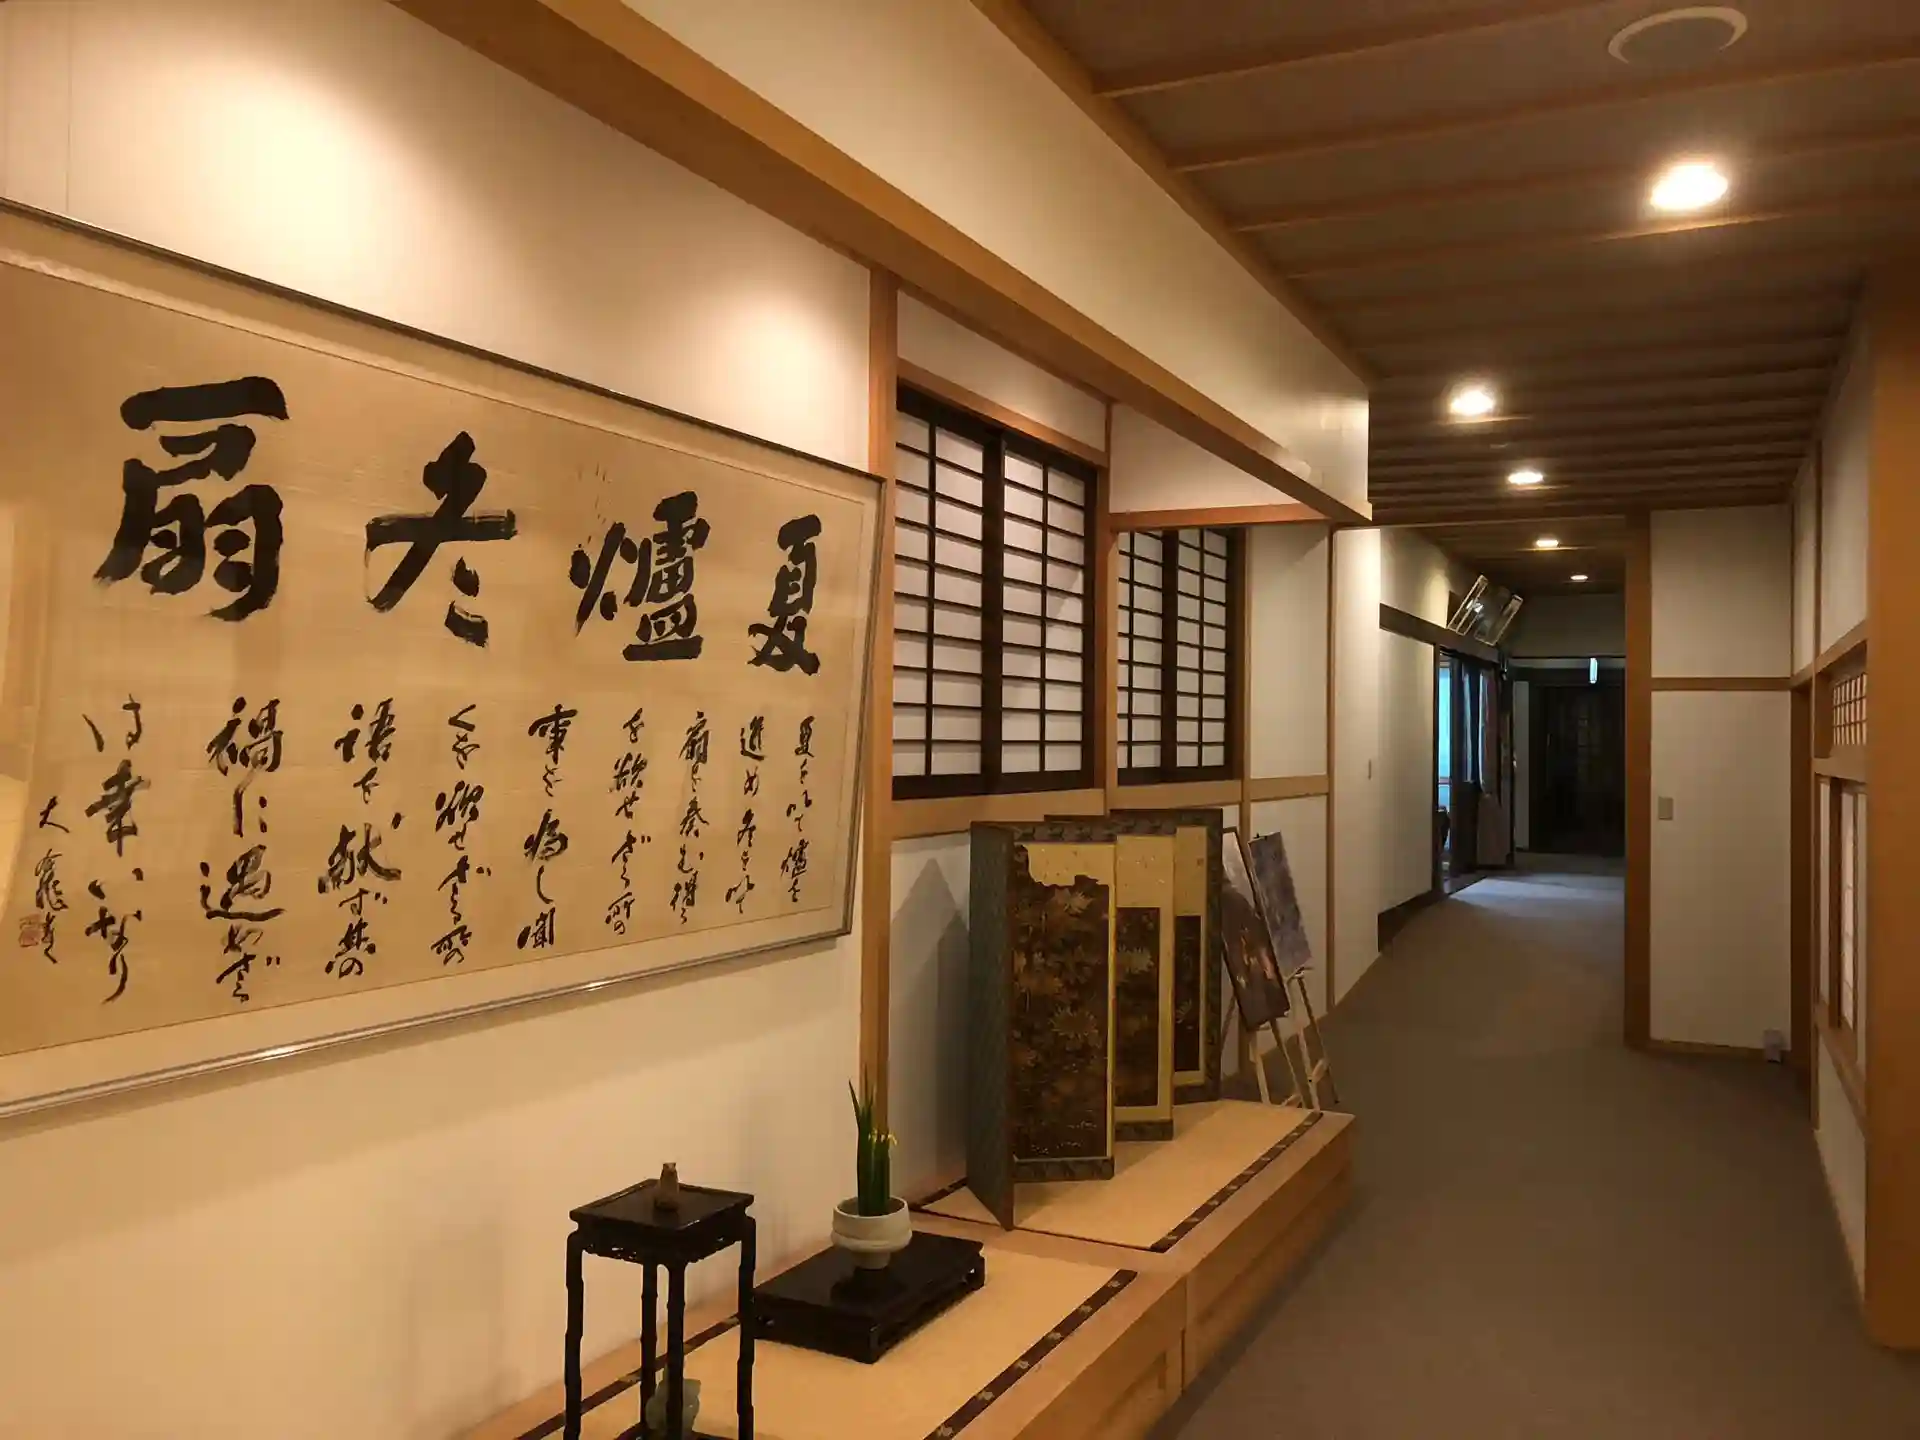 夏爐冬扇
夏を以て爐を
進め冬を以て
扇を奏む得る
を欲せざる所の
事を為し聞
くを欲せざる所の
語を献ず其の
禍に遇わざる
は幸いなり